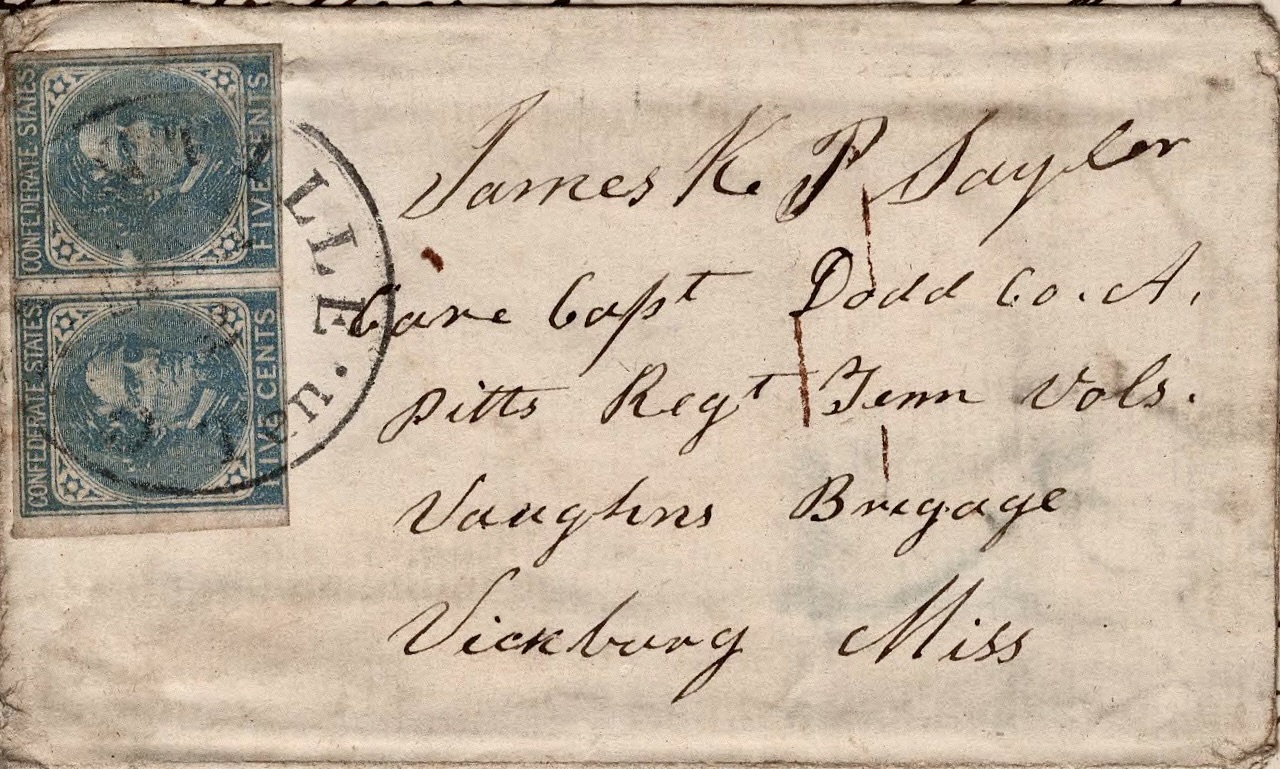 CONFEDERATE STATES
FIVE CENTS
CONFEDERATE STATES
FIVE CENTS
VILLE.
Ten.
James K. P. Saylor
Care Capt Dodd Co. A.
Pitts Regt Tenn Vols.
Vaughns Brigage
Vickburg Miss